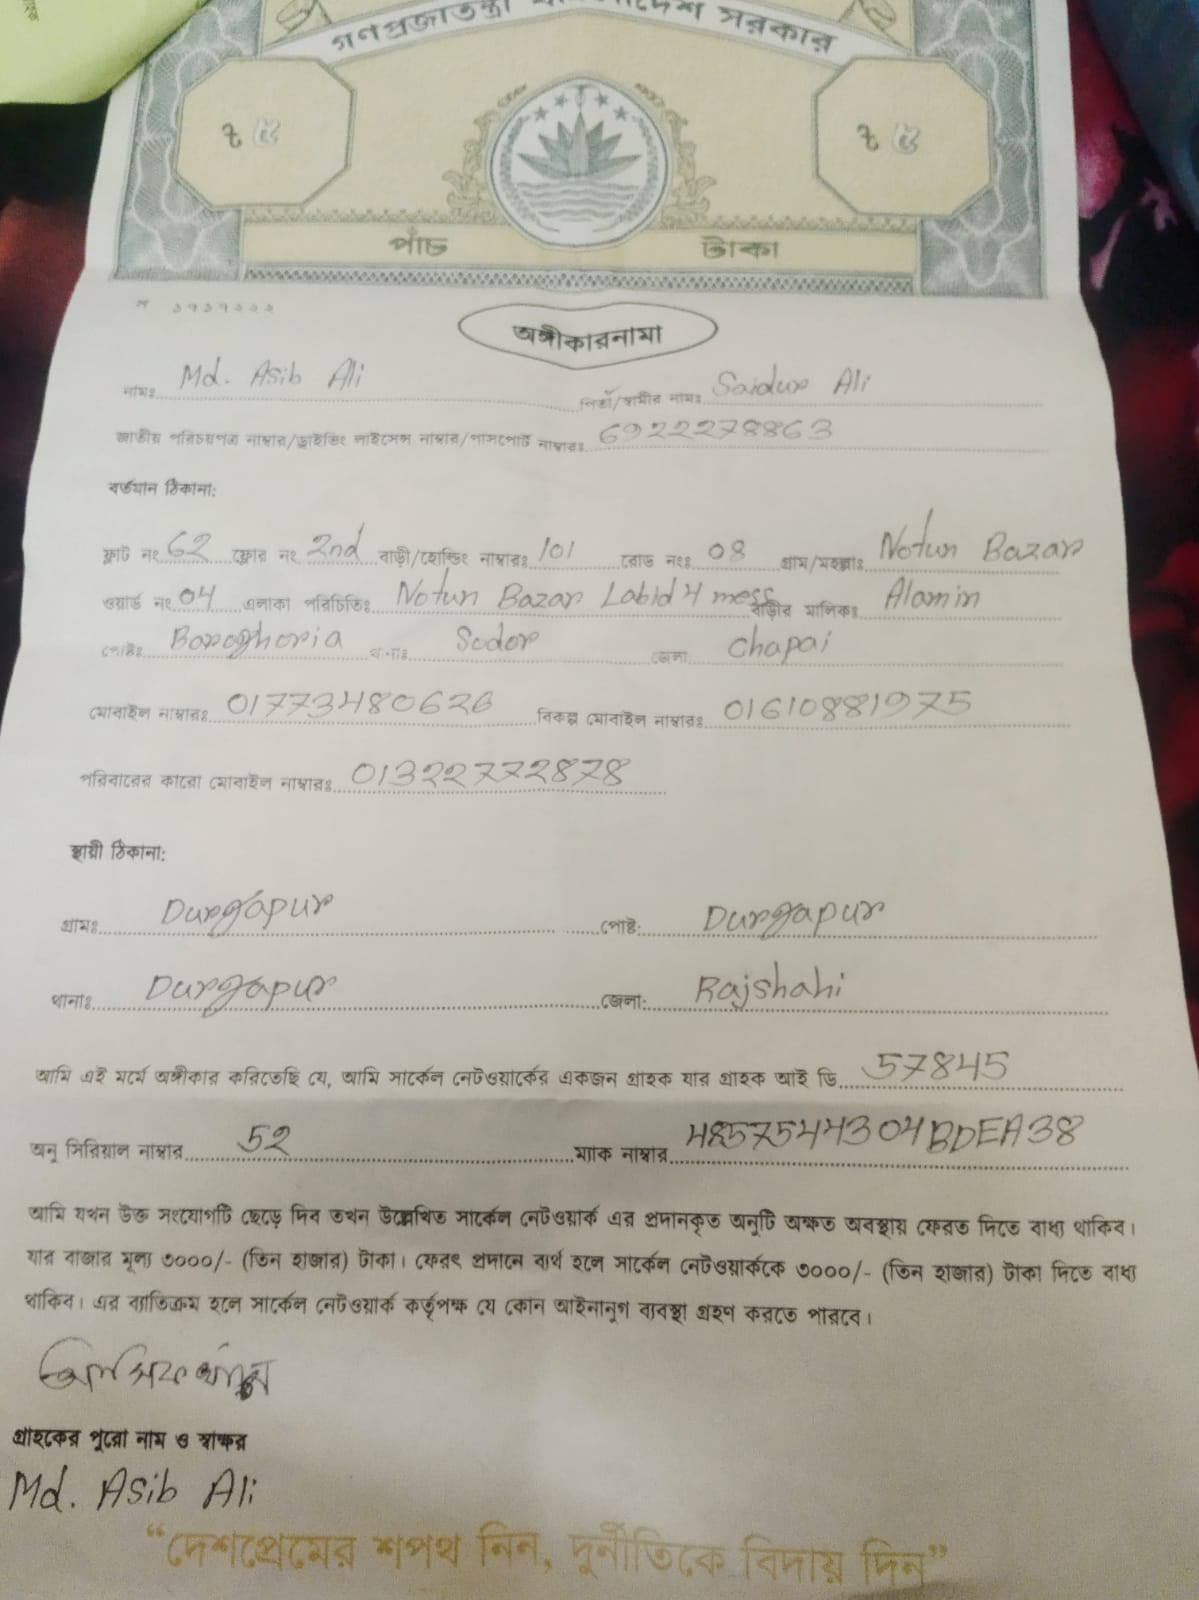 গণপ্রজাতন্ত্রী বাংলাদেশ সরকার
৳ ৫ ৳ ৫
পাঁচ টাকা
অঙ্গীকারনামা
নামঃ Md. Asib Ali পিতা/স্বামীর নামঃ Saidur Ali
জাতীয় পরিচয়পত্র নাম্বার/ড্রাইভিং লাইসেন্স নাম্বার/পাসপোর্ট নাম্বারঃ 6922278863
বর্তমান ঠিকানা:
ফ্লাট নং 62 ফ্লোর নং 2nd বাড়ী/হোল্ডিং নাম্বারঃ 101 রোড নংঃ 08 গ্রাম/মহল্লাঃ Notun Bazar
ওয়ার্ড নং 04 এলাকা পরিচিতিঃ Notun Bazar Labid 4 mess বাড়ীর মালিকঃ Alamin
পোষ্টঃ Baroghoria থানাঃ Sodor জেলা Chapai
মোবাইল নাম্বারঃ 01773480626 বিকল্প মোবাইল নাম্বারঃ 01610881975
পরিবারের কারো মোবাইল নাম্বারঃ 01322772878
স্থায়ী ঠিকানা:
গ্রামঃ Durgapur পোষ্ট: Durgapur
থানাঃ Durgapur জেলা: Rajshahi
আমি এই মর্মে অঙ্গীকার করিতেছি যে, আমি সার্কেল নেটওয়ার্কের একজন গ্রাহক যার গ্রাহক আই ডি 57845
অনু সিরিয়াল নাম্বার 52 ম্যাক নাম্বার 4857544304BDEA38
আমি যখন উক্ত সংযোগটি ছেড়ে দিব তখন উল্লেখিত সার্কেল নেটওয়ার্ক এর প্রদানকৃত অনুটি অক্ষত অবস্থায় ফেরত দিতে বাধ্য থাকিব।
যার বাজার মূল্য ৩০০০/- (তিন হাজার) টাকা। ফেরৎ প্রদানে ব্যর্থ হলে সার্কেল নেটওয়ার্ককে ৩০০০/- (তিন হাজার) টাকা দিতে বাধ্য
থাকিব। এর ব্যাতিক্রম হলে সার্কেল নেটওয়ার্ক কর্তৃপক্ষ যে কোন আইনানুগ ব্যবস্থা গ্রহণ করতে পারবে।
গ্রাহকের পুরো নাম ও স্বাক্ষর
Md. Asib Ali
“দেশপ্রেমের শপথ নিন, দুর্নীতিকে বিদায় দিন”